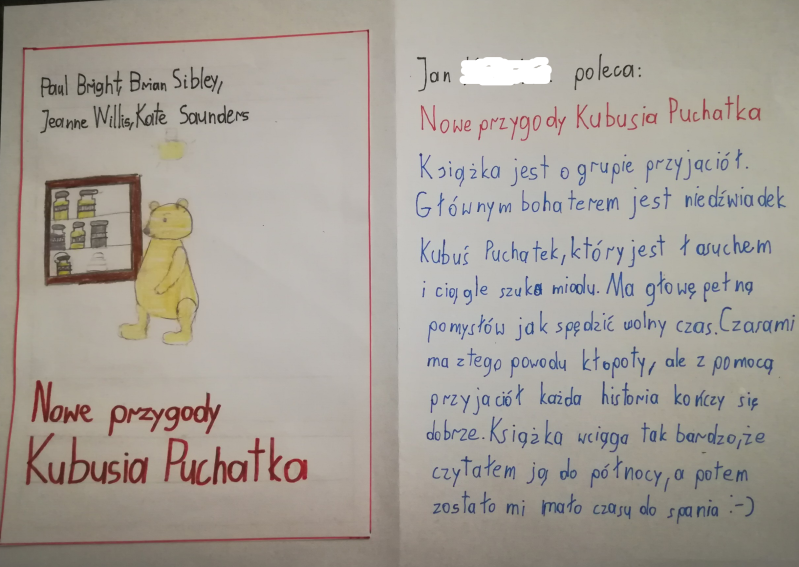 Paul Bright, Brian Sibley,
Jeanne Willis, Kate Saunders
Nowe przygody
Kubusia Puchatka
Jan poleca:
Nowe przygody Kubusia Puchatka
Książka jest o grupie przyjaciół.
Głównym bohaterem jest niedźwiadek
Kubuś Puchatek, który jest łasuchem
i ciągle szuka miodu. Ma głowę pełną
pomysłów jak spędzić wolny czas. Czasami
ma z tego powodu kłopoty, ale z pomocą
przyjaciół każda historia kończy się
dobrze. Książka wciąga tak bardzo, że
czytałem ją do północy, a potem
zostało mi mało czasu do spania :-)